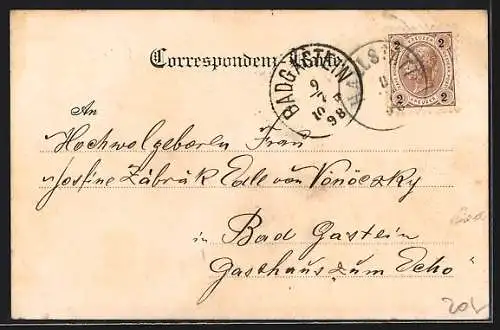 Correspondenz-Karte
BADGASTEIN
9
7
98
HALLST
2 2
2 2
An
Hochwolgeboren Frau
Josfine Zábrák Edle von Vönöczky
in Bad Gastein
Gasthaus „zum Echo"
20